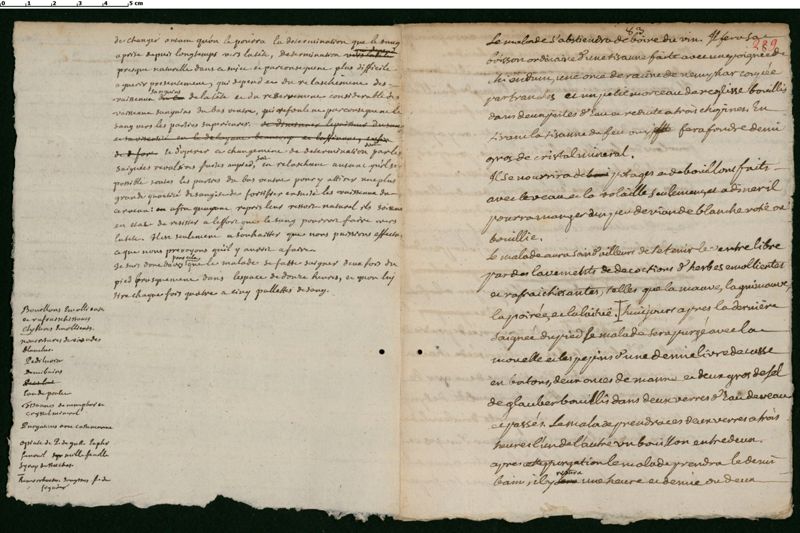 de changer autant qu'on le pourra la determination que le sang
a prise depuis longtemps vers la teste, determination
presque naturelle dans ce sujet et par consequent plus difficile
a guerir presentement, qui depend ou du relaschement des
vaisseaux sanguins de la teste ou du resserrement considerable des
vaisseaux sanguins du bas ventre, qui refoule par consequent le
sang vers les parties superieures.
et d'operer ce changement de determination par les
saignées revulsives faites au pied, en relaschant autant qu'il sera
possible toutes les parties du bas ventre pour y attirer une plus
grande quantité de sang et de fortifier ensuite les vaisseaux du
cerveau afin qu'ayant repris leur ressort naturel ils soient
en etat de resister a l'effort que le sang pourroit faire vers
la teste. Il est seulement a souhaitter que nous puissions effectuer
ce que nous prevoyons qu'il y auroit a faire.
Je suis donc d'avis que le malade se fasse saigner deux fois du
pied brusquement dans l'espace de douze heures, et qu'on luy
tire chaque fois quatre a cinq pallettes de sang.
Bouillons
et rafraischissans
nourritures de viandes
blanches
demibains
Eau de poulet
Tisannes de nenuphar et
crystal mineral
Purgations avec
83
289
Le malade s'abstiendra de boire du vin. Il fera sa
boisson ordinaire d'une tisanne faite avec une poignée de
chiendent, une once de racine de nenuphar coupée
par tranches et un petit morceau de reglisse bouillis
dans deux pintes d'Eau et reduite a trois chopines. En
tirant la tisanne du feu on y fera fondre demi
gros de cristal mineral.
Il se nourrira de potages et de bouillons faits
avec le veau et la volaille seulement, et a diner il
pourra manger un peu de viande blanche rotie ou
bouillie.
Le malade aura soin d'ailleurs de se tenir le ventre libre
par des lavements de decoctions d'herbes emollientes
et rafraichissantes, telles que la mauve, la guimauve,
la poirée, et la laituë. Huit jours apres la derniere
saignée du pied le malade sera purgé avec la
mouelle et les pepins d'une demie livre de casse
en batons, deux onces de manne et deux gros de sel
de glauber bouillis dans deux verres d'Eau de veau
et passés. Le malade prendra ces deux verres a trois
heures l'un de l'autre un bouillon entre deux.
apres purgation le malade prendra le demi
bain, il y restera une heure et demie ou deux